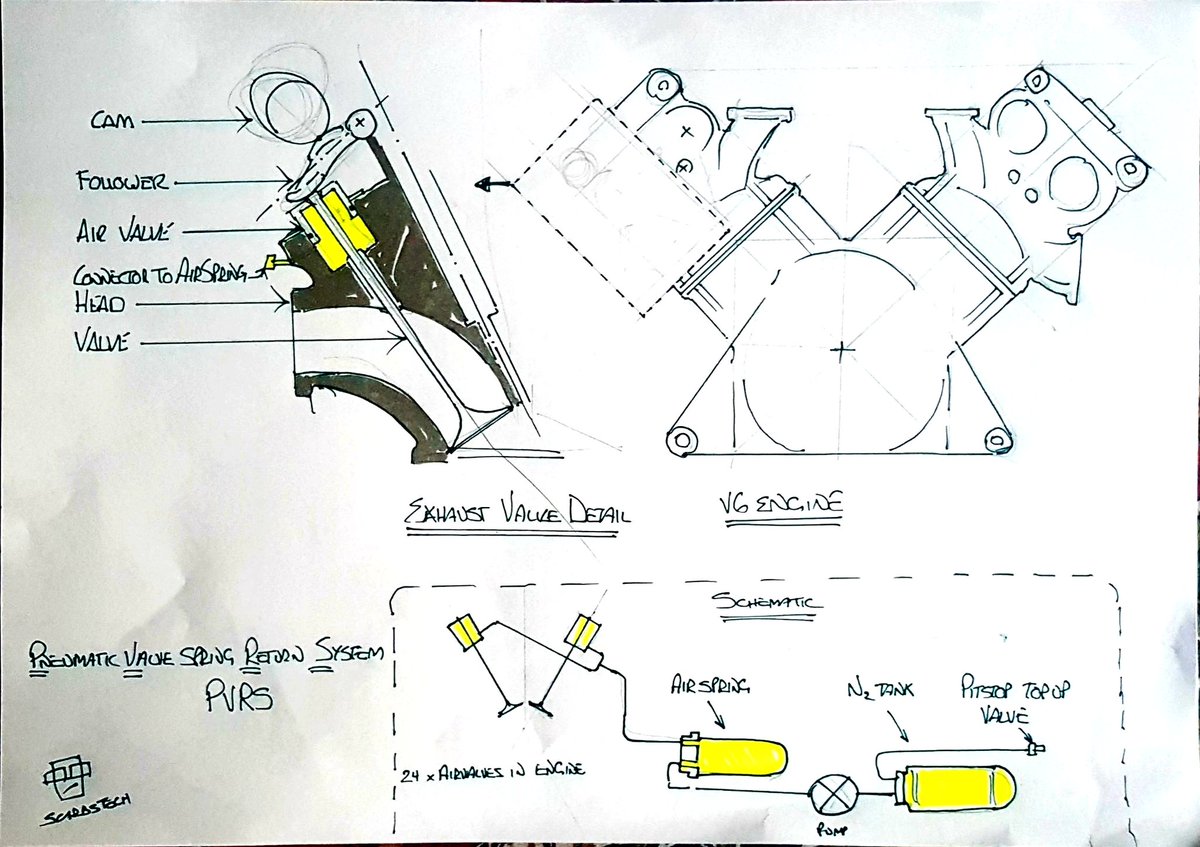 CAM
FOLLOWER
AIR VALVE
CONNECTOR TO AIRSPRING
HEAD
VALVE
EXHAUST VALVE DETAIL
V6 ENGINE
SCHEMATIC
PNEUMATIC VALVE SPRING RETURN SYSTEM
PVRS
AIRSPRING
N₂ TANK
PITSTOP TOP UP
VALVE
24 x AIRVALVES IN ENGINE
PUMP
SCARBSTECH